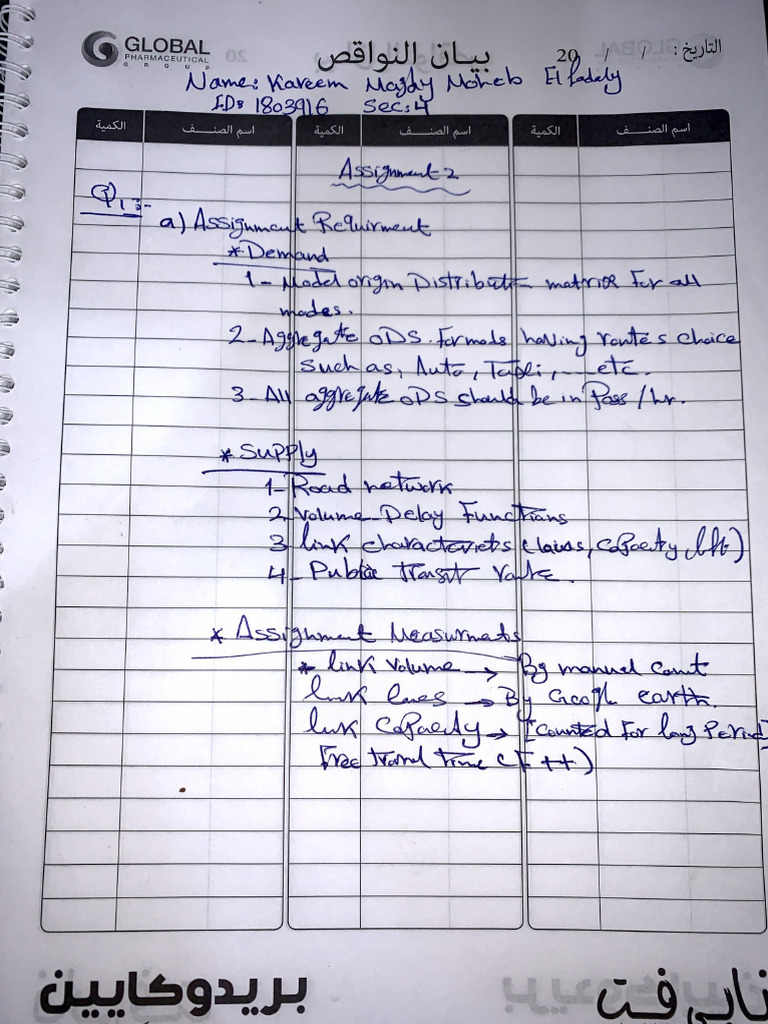 GLOBAL
PHARMACEUTICAL
GROUP
بيان النواقص
التاريخ : / / 20
Name: Kareem Magdy Moheb Elfadely
ID: 1803916 Sec: 4
اسم الصنف الكمية اسم الصنف الكمية اسم الصنف الكمية
Assignment 2
Q1:-
a) Assignment Requirment
* Demand
1- Model origin Distribution matrix for all
modes.
2- Aggregate ODS. For mods having routes choice
such as, Auto, Taxi, ... etc.
3- All aggregate ODS should be in Pass/hr.
* Supply
1- Road network
2- Volume Delay Functions
3- link (lanes, capacity,
4- Public transit route.
* Assignment Measurments
* link volume → By manuel count
link lanes → By Google earth.
link capacity → [counted for long Period]
Free travel time (F++)
بريدوكايين
نايى فت